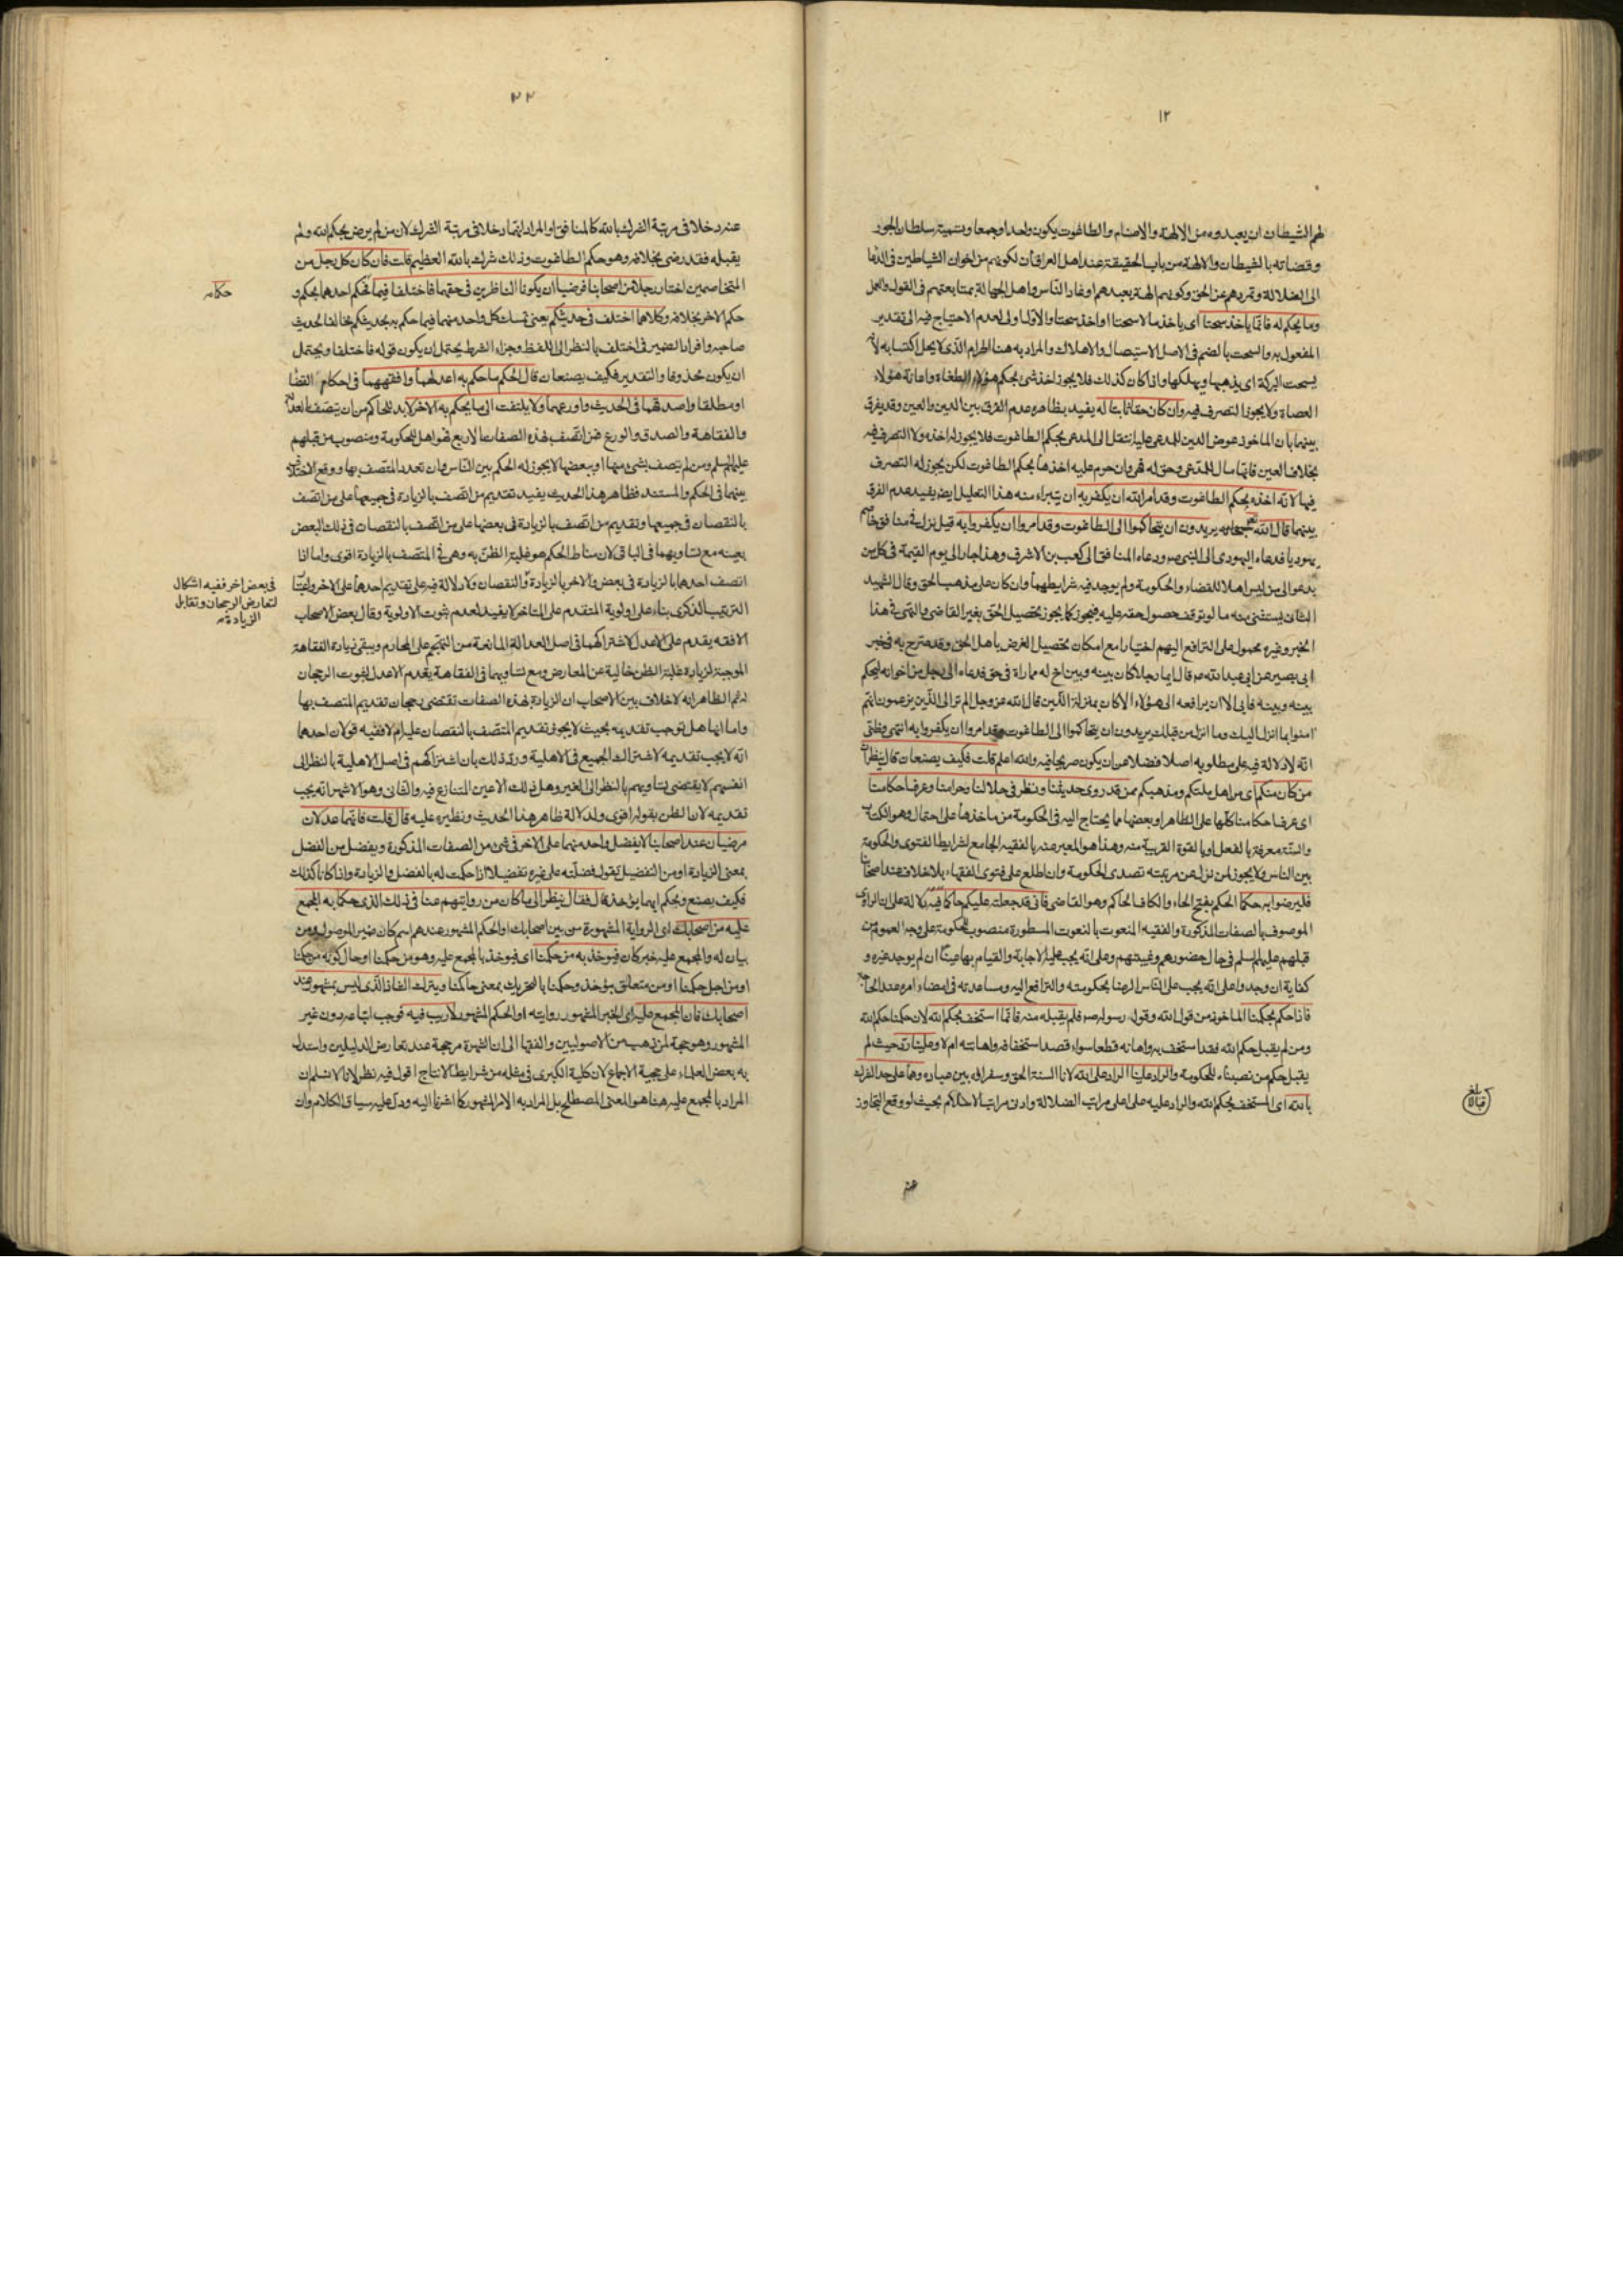 ١٢
لهم الشيطان ان يعبدوه من الالهة والاصنام والطاغوت يكون واحدا وجمعا وتسمية سلطان الجور
وقضاته بالشيطان والالهة من باب الحقيقة عند اهل العراق لكونهم من اخوان الشياطين في الدعاء
الى الضلالة وتمردهم عن الحق وكونهم الهة يعبدهم اوغاد الناس واهل الجهالة بمتابعتهم في القول والعمل
وما يحكم له فانما ياخذ سحتا اى ياخذ مالا سحتا او اخذ سحتا والاول اولى لعدم الاحتياج فيه الى تقدير
المفعول به والسحت بالضم في الاصل الاستيصال والاهلاك والمراد به هنا الحرام الذى لا يحل اكتسابه لانه
يسحت البركة اى يذهبها ويهلكها واذا كان كذلك فلا يجوز اخذ شئ بحكم هؤلاء الطغاة واعانة هؤلاء
العصاة ولا يجوز التصرف فيه وان كان حقا ثابتا له يفيد بظاهره عدم الفرق بين الدين والعين وقد يفرق
بينهما بان الماخوذ عوض الدين للمدعى عليه انتقل الى المدعى بحكم الطاغوت فلا يجوز له اخذه ولا التصرف فيه
بخلاف العين فانها مال للمدعى وحق له فهى وان حرم عليه اخذها بحكم الطاغوت لكن يجوز له التصرف
فيها لانه اخذه بحكم الطاغوت وقد امر الله ان يكفر به ان يتبراء منه هذا التعليل ايضا يفيد عدم الفرق
بينهما قال الله يريدون ان يتحاكموا الى الطاغوت وقد امروا ان يكفروا به قيل نزلت في منافق خاصم
يهوديا فدعاه اليهودى الى النبى ص ودعاه المنافق الى كعب بن الاشرف وهذا جار الى يوم القيمة في كل من
يدعو الى من ليس اهلا للقضاء والحكومة ولم يوجد فيه شرايطهما وان كان على مذهب الحق وقال الشهيد
الثانى يستثنى منه ما لو توقف حصول حقه عليه فيجوز كما يجوز تحصيل الحق بغير القاضى والنهى في هذا
الخبر وغيره محمول على الترافع اليهم اختيارا مع امكان تحصيل الغرض باهل الحق وقد صرح به في خبر
ابى بصير عن ابى عبد الله عم قال ايما رجل كان بينه وبين اخ له مماراة في حق فدعاه الى رجل من اخوانه ليحكم
بينه وبينه فابى الا ان يرافعه الى هؤلاء الا كان بمنزلة الذين قال الله عز وجل الم تر الى الذين يزعمون انهم
امنوا بما انزل اليك وما انزل من قبلك يريدون ان يتحاكموا الى الطاغوت وقد امروا ان يكفروا به انتهى وظنى
انه لا دلالة فيه على مطلوبه اصلا فضلا عن ان يكون صريحا فيه والله اعلم قلت فكيف يصنعان قال ينظران
من كان منكم اى من اهل ملتكم ومذهبكم ممن قد روى حديثنا ونظر في حلالنا وحرامنا وعرف احكامنا
اى عرف احكامنا كلها على الظاهر او بعضها مما يحتاج اليه في الحكومة من ماخذها على احتمال وهو الكتاب
والسنة معرفة بالفعل او بالقوة القريبة منه وهذا هو المعبر عنه بالفقيه الجامع لشرايط الفتوى والحكومة
بين الناس ولا يجوز لمن نزل عن مرتبته تصدى الحكومة وان اطلع على فتوى الفقهاء بلا خلاف عند اصحابنا
فليرضوا به حكما الحكم بفتح الحاء والكاف الحاكم وهو القاضى فانى قد جعلته عليكم حاكما فيه دلالة على ان الراوى
الموصوف بالصفات المذكورة والفقيه المنعوت بالنعوت المسطورة منصوب للحكومة على وجه العموم من
قبلهم عليهم السلم في حال حضورهم وغيبتهم وعلى انه يجب عليه الاجابة والقيام بها عينا ان لم يوجد غيره و
كفاية ان وجد وعلى انه يجب على الناس الرضا بحكومته والترافع اليه ومساعدته في امضاء امره عند الحاجة
فاذا حكم بحكمنا الماخوذ من قول الله وقول رسوله ص فلم يقبله منه فانما استخف بحكم الله لان حكمنا حكم الله
ومن لم يقبل حكم الله فقد استخف به واهانه قطعا سواء قصد استخفافه واهانته ام لا وعلينا رد حيث لم
يقبل حكم من نصبناه للحكومة والراد علينا الراد على الله لانا السنة الحق وسفراؤه بين عباده وهما على حد الشرك
بالله اى المستخف بحكم الله والراد عليه على اعلى مراتب الضلالة وادنى مراتب الاسلام بحيث لو وقع التجاوز
عنه
بلغ قبالا
٢٣
عنه دخلا في مرتبة الشرك بالله كالمنافق او المراد انهما دخلا في مرتبة الشرك لان من لم يرض بحكم الله ولم
يقبله فقد رضى بخلافه وهو حكم الطاغوت وذلك شرك بالله العظيم قلت فان كان كل رجل من
المتخاصمين اختار رجلا من اصحابنا فرضيا ان يكونا الناظرين في حقهما فاختلفا فيما حكما فحكم احدهما بحكم و
حكم الاخر بخلافه وكلاهما اختلف في حديثكم يعنى تمسك كل واحد منهما فيما حكم به بحديثكم مخالفا لحديث
صاحبه وافراد الضمير في اختلف بالنظر الى اللفظ وجزاء الشرط يحتمل ان يكون قوله فاختلفا ويحتمل
ان يكون محذوفا والتقدير فكيف يصنعان قال الحكم ما حكم به اعدلهما وافقههما في احكام القضا
او مطلقا واصدقهما في الحديث واورعهما ولا يلتفت الى ما يحكم به الاخر لا بد للحاكم من ان يتصف بالعدالة
والفقاهة والصدق والورع فمن اتصف بهذه الصفات الاربع فهو اهل للحكومة ومنصوب من قبلهم
عليهم السلم ومن لم يتصف بشئ منها او بعضها لا يجوز له الحكم بين الناس وان تعدد المتصف بها ووقع الاختلاف
بينهما في الحكم والمستند فظاهر هذا الحديث يفيد تقديم من اتصف بالزيادة في جميعها على من اتصف
بالنقصان في جميعها وتقديم من اتصف بالزيادة في بعضها على من اتصف بالنقصان في ذلك البعض
بعينه مع تساويهما في الباقى لان مناط الحكم هو غلبة الظن به وهى في المتصف بالزيادة اقوى واما اذا
اتصف احدهما بالزيادة في بعض والاخر بالزيادة والنقصان ولا دلالة فيه على تقديم احدهما على الاخر واعتبار
الترتيب الذكرى بناء على اولوية المتقدم على المتاخر لا يفيد لعدم ثبوت الاولوية وقال بعض الاصحاب
الافقه يقدم على الاعدل لاشتراكهما في اصل العدالة المانعة من التهجم على المحارم ويبقى زيادة الفقاهة
الموجبة لزيادة غلبة الظن خالية عن المعارض ومع تساويهما في الفقاهة يقدم الاعدل لثبوت الرجحان
له ثم الظاهر انه لا خلاف بين الاصحاب ان الزيادة بهذه الصفات تقتضى رجحان تقديم المتصف بها
واما انها هل توجب تقديمه بحيث لا يجوز تقديم المتصف بالنقصان عليه ام لا ففيه قولان احدهما
انه لا يجب تقديمه لاشتراك الجميع في الاهلية ورد ذلك بان اشتراكهم في اصل الاهلية بالنظر الى
انفسهم لا يقتضى تساويهم بالنظر الى الغير وهل ذلك الا عين المتنازع فيه والثانى وهو الاشهر انه يجب
تقديمه لان الظن بقوله اقوى ولدلالة ظاهر هذا الحديث ونظيره عليه قال قلت فانهما عدلان
مرضيان عند اصحابنا لا يفضل واحد منهما على الاخر في شئ من الصفات المذكورة ويفضل من الفضل
بمعنى الزيادة او من التفضيل تقول فضلته على غيره تفضيلا اذا حكمت له بالفضل والزيادة واذا كانا كذلك
فكيف يصنع وبحكم ايهما يؤخذ قال فقال ينظر الى ما كان من روايتهم عنا في ذلك الذى حكما به المجمع
عليه من اصحابك اى الرواية المشهورة من بين اصحابك او الحكم المشهور عندهم اسم كان ضمير الموصول ومن
بيان له والمجمع عليه خبر كان فيؤخذ به من حكمنا اى فيؤخذ بالمجمع عليه وهو من حكمنا او حال كونه من حكمنا
او من اجل حكمنا او من متعلق بيؤخذ وحكمنا بالتحريك بمعنى حاكمنا ويترك الشاذ الذى ليس بمشهور عند
اصحابك فان المجمع عليه اى الخبر المشهور روايته او الحكم المشهور لا ريب فيه فوجب اتباعه دون غير
المشهور وهو حجة لمن ذهب من الاصوليين والفقها الى ان الشهرة مرجحة عند تعارض الدليلين واستدل
به بعض العلماء على حجية الاجماع لان كلية الكبرى في مثله من شرايط الانتاج اقول فيه نظر لانا لا نسلم ان
المراد بالمجمع عليه هنا هو المعنى المصطلح بل المراد به الامر المشهور كما اشرنا اليه ودل عليه سياق الكلام وان
حكماه
في بعض اخر ففيه اشكال
لتعارض الرجحان وتقابل
الزيادة